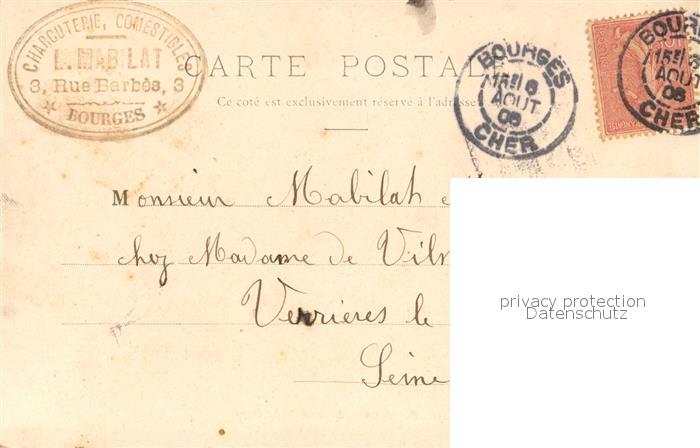 CHARCUTERIE, COMESTIBLES
L. MABILAT
3, Rue Barbès, 3
BOURGES
CARTE POSTALE
Ce coté est exclusivement réservé à l'adresse
BOURGES
15 6
AOUT
06
CHER
BOURGES
15 6
AOUT
06
CHER
Monsieur Mabilat
chez Madame de Vilm
Verrières le
Seine
privacy protection
Datenschutz